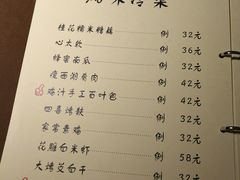 桂花糯米糖藕 例 32元
心太软 例 36元
蜂蜜南瓜 例 32元
瘦西湖肴肉 例 42元
鸡汁手工石叶包 例 42元
四喜烤麸 例 32元
家常素鸡 例 32元
花雕白米虾 例 58元
大烤茭白干 例 32元